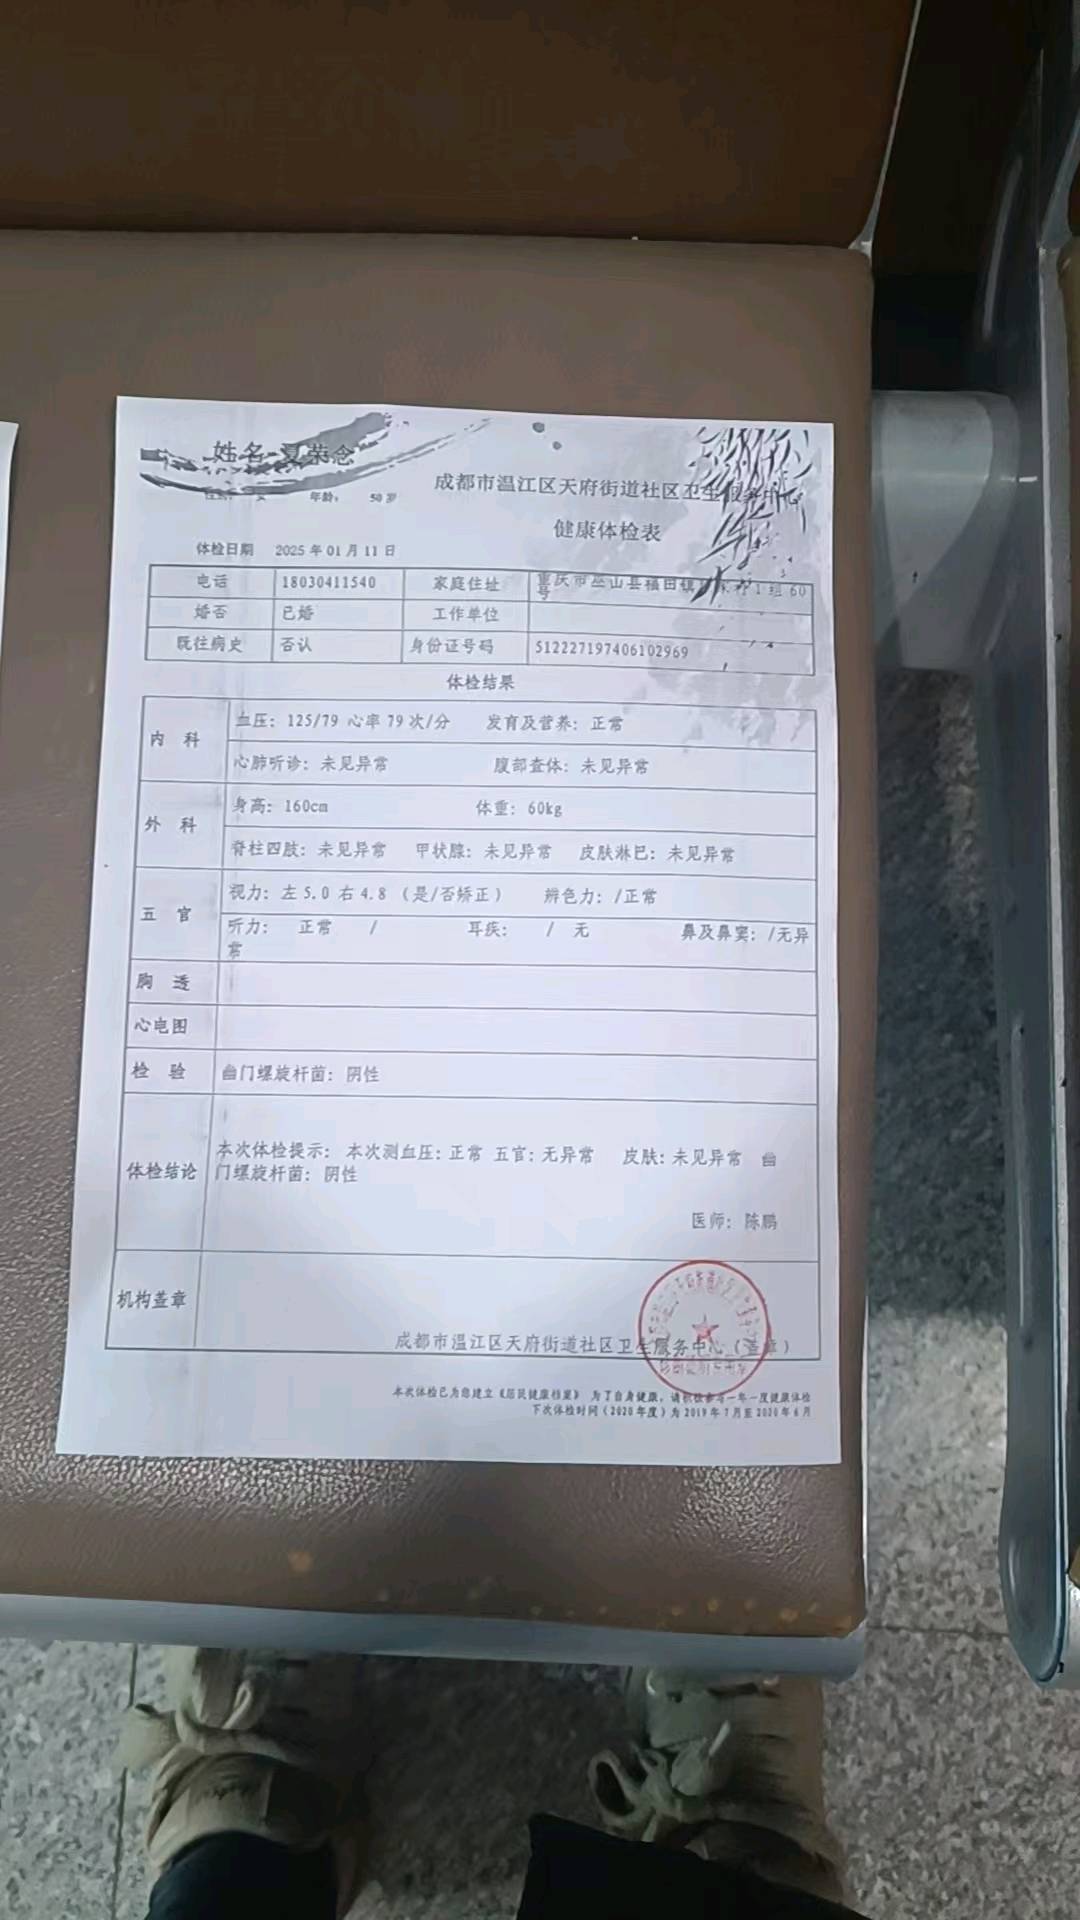 姓名 夏荣念
性别: 女 年龄: 50岁
成都市温江区天府街道社区卫生服务中心
健康体检表
体检日期 2025年01月11日
电话 18030411540 家庭住址 重庆市巫山县福田镇 村1组60号
婚否 已婚 工作单位
既往病史 否认 身份证号码 512227197406102969
体检结果
内 科 血压: 125/79 心率79次/分 发育及营养: 正常
心肺听诊: 未见异常 腹部查体: 未见异常
外 科 身高: 160cm 体重: 60kg
脊柱四肢: 未见异常 甲状腺: 未见异常 皮肤淋巴: 未见异常
五 官 视力: 左5.0 右4.8 (是/否矫正) 辨色力: /正常
听力: 正常 / 耳疾: / 无 鼻及鼻窦: /无异
常
胸 透
心电图
检 验 幽门螺旋杆菌: 阴性
体检结论 本次体检提示: 本次测血压: 正常 五官: 无异常 皮肤: 未见异常 幽
门螺旋杆菌: 阴性
医师: 陈鹏
机构盖章
成都市温江区天府街道社区卫生服务中心(盖章)
本次体检已为您建立《居民健康档案》 为了自身健康, 请积极参与一年一度健康体检
下次体检时间(2020年度)为2019年7月至2020年6月